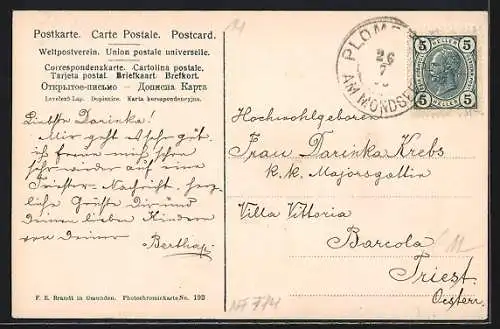 Postkarte. Carte Postale. Postcard.
Weltpostverein. Union postale universelle.
Correspondenzkarte. Cartolina postale.
Tarjeta postal. Briefkaart. Brefkort.
Открытое-письмо — Дописна Карта
Levelező-Lap. Dopisnice. Karta korespondencyjna.
Liebste Darinka!
Mir geht es sehr gut,
ich freue mich schon
sehr wieder auf eine
Triester-Nachricht, herz-
liche Grüße Dir und
Deinen lieben Kindern
von Deiner
Bertha
F. E. Brandt in Gmunden. Photochromiekarte No. 192
NF 774
PLOMB
26
7
AM MONDSEE
5 HELLER 5
5 HELLER 5
Hochwohlgeboren
Frau Darinka Krebs
k. k. Majorsgattin
Villa Vittoria
Barcola
Triest.
Oesterr.